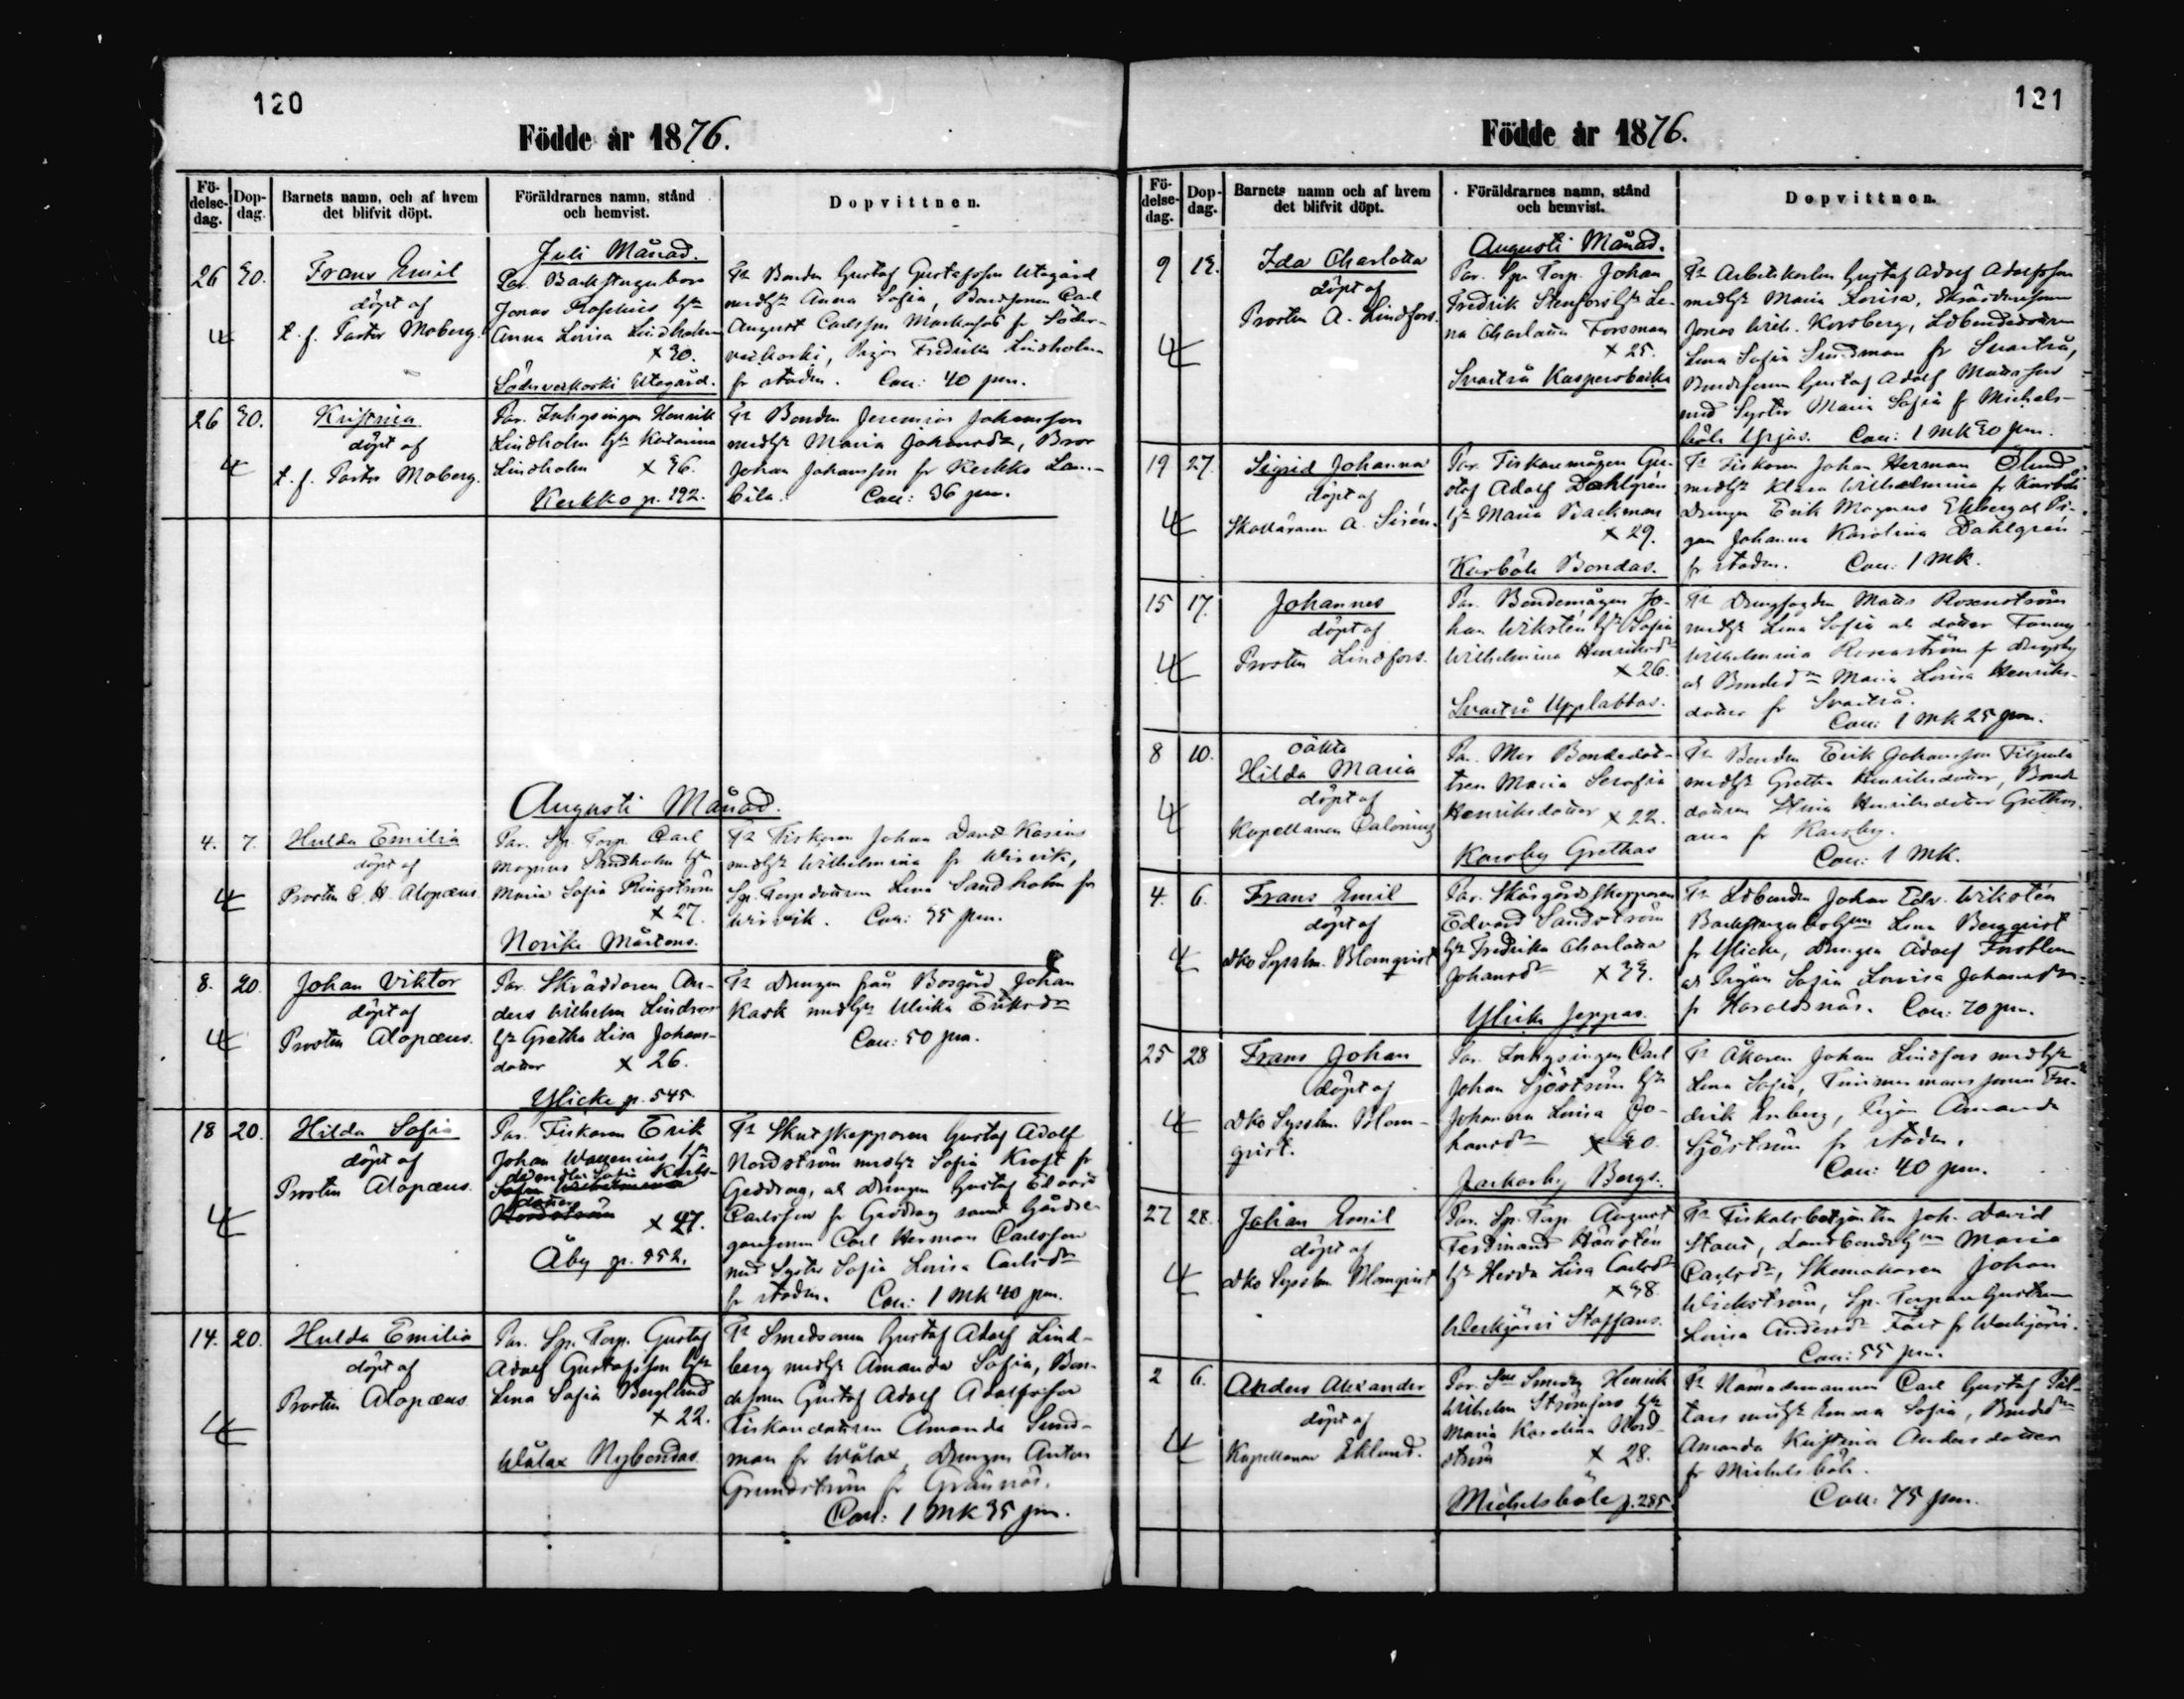 120
Födde år 1876.
Fö-
delse-
dag.
Dop-
dag.
Barnets namn, och af hvem
det blifvit döpt.
Föräldrarnes namn, stånd
och hemvist.
Dopvittnen.
Juli Månad.
26 30. Frans Emil
döpt af
t. f. Pastor Moberg.
Par. Backstugubon
Jonas
Anna Lovisa Lindholm
× 30.
Söderveckoski Utegård.
Ft Bonden Gustaf Gustafsson Utegård
med hst Anna Sofia, Bondsonen Carl
August Carlsson fr Söder-
veckoski, Pigan Fredrika Lindholm
fr staden. Coll: 40 pen.
26 30. Kristina
döpt af
t. f. Pastor Moberg.
Par. Inhysingen Henrik
Lindholm hst Katarina
Lindholm × 36.
Kerkko p. 192.
Ft Bonden Jeremias Johansson
med hst Maria Johansdr, Bror
Johan Johansson fr Kerkko
Coll: 36 pen.
Augusti Månad.
4. 7. Hulda Emilia
döpt af
Prosten C. H. Alopæus.
Par. Sp. Torp. Carl
Magnus Sandholm hst
Maria Sofia Ringström
× 27.
Norike Mårtens.
Ft Fiskaren Johan David
med hst Wilhelmina fr Wirvik,
Sp. Torpdottren Lena Sandholm fr
Wirvik. Coll: 35 pen.
8. 20. Johan Viktor
döpt af
Prosten Alopæus.
Par. Skräddaren An-
ders Wilhelm Lindroos
hst Gretha Lisa Johans-
dotter × 26.
Ylicke p. 545.
Ft Drengen från Bosgård Johan
Kask med hst Ulrika Eriksdr
Coll: 50 pen.
18 20. Hilda Sofia
döpt af
Prosten Alopæus.
Par. Fiskaren Erik
Johan Wallenius hst
Sofia Karls-
dotter
× 27.
Åby p. 952.
Ft Skutskepparen Gustaf Adolf
Nordström med hst Sofia Kraft fr
Geddrag, ok Drengen Gustaf Edvard
Carlsson fr Geddrag samt
Carl Herman Carlsson
med Syster Sofia Lovisa Carlsdr
fr staden. Coll: 1 Mk 40 pen.
14. 20. Hulda Emilia
döpt af
Prosten Alopæus.
Par. Sp. Torp. Gustaf
Adolf Gustafsson hst
Lena Sofia Berglund
× 22.
Wålax Nybondas
Ft Smedsonen Gustaf Adolf Lind-
berg med hst Amanda Sofia, Bon-
desonen Gustaf Adolf Adolfsson
Fiskardottren Amanda Sund-
man fr Wålax, Drengen Anton
Grundström fr Grännäs.
Coll: 1 Mk 35 pen.
121
Födde år 1876.
Fö-
delse-
dag.
Dop-
dag.
Barnets namn och af hvem
det blifvit döpt.
Föräldrarnes namn, stånd
och hemvist.
Dopvittnen.
Augusti Månad.
9 13. Ida Charlotta
döpt af
Prosten A. Lindfors.
Par. Sp. Torp. Johan
Fredrik Stenfors hst Le-
na Charlotta Forsman
× 25.
Svartså Kaspersbacka
Ft Arbetskarlen Gustaf Adolf Adolfsson
med hst Maria Lovisa,
Jonas Wilh. Korsberg,
Lena Sofia Sundman fr Svartså,
Bondesonen Gustaf Adolf Mattsson
med Syster Maria Sofia fr Michels-
böle Yrjas. Coll: 1 Mk 30 pen.
19 27. Sigrid Johanna
döpt af
Skolläraren A. Sirén.
Par. Fiskaremågen Gu-
staf Adolf Dahlgrén
hst Maria Backman
× 29.
Karböle Bondas.
Ft Fiskaren Johan Herman Ölund
med hst Klara Wilhelmina fr Karböle
Drengen Erik Magnus Ekberg ok Pi-
gan Johanna Karolina Dahlgrén
fr staden. Coll: 1 Mk.
15 17. Johannes
döpt af
Prosten Lindfors.
Par. Bondemågen Jo-
han Wikstén hst Sofia
Wilhelmina Henriksdr
× 26.
Svartså Upplabbas.
Ft Drengfogden Matts Rosenström
med hst Lena Sofia ok dotter Fanny
Wilhelmina Rosenström fr
ok Bonded. Maria Lovisa Henriks-
dotter fr Svartså.
Coll: 1 Mk 25 pen.
8 10. Oäkta
Hilda Maria
döpt af
Kapellanen Calonius
Par. Mor Bondedot-
tren Maria Serafia
Henriksdotter × 22.
Karsby Grethas
Ft Bonden Erik Johansson
med hst Gretha Henriksdotter, Bonde
dottren Henriksdotter Grethas
fr Karsby.
Coll: 1 Mk.
4. 6. Frans Emil
döpt af
dko Sysslm. Blomqvist
Par. Skärgårdsskepparen
Edvard Sandström
hst Fredrika Charlotta
Johansdr × 33.
Ylicke Jeppas.
Ft Ldbonden Johan Edv. Wikstén
Lena Bergqvist
fr Ylicke, Drengen Adolf
ok Pigan Sofia Lovisa Johansdr
fr Haraldsnäs. Coll: 70 pen.
25 28 Frans Johan
döpt af
dko Sysslm. Blom-
qvist.
Par. Inhysingen Carl
Johan Sjöström hst
Johanna Lovisa Jo-
hansdr × 40.
Jackarby Bergs.
Ft Åkaren Johan Lindfors med hst
Lena Sofia, Timmermans sonen Fre-
drik, Pigan Amanda
Sjöström fr staden.
Coll: 40 pen.
27 28. Johan Emil
döpt af
dko Sysslm Blomqvist
Par. Sp. Torp. August
Ferdinand
hst Hedda Lisa Carlsdr
× 38.
Werkjärvi Staffans.
Ft Fiskalsbetjenten Joh. David
Maria
Carlsdr, Skomakaren Johan
Wickström, Sp. Torparen Gustaf
Lovisa Andersdr fr Werkjärvi.
Coll: 55 pen.
2 6. Anders Alexander
döpt af
Kapellanen Eklund.
Par. Henrik
Wilhelm Strömfors hst
Maria Karolina Nord-
ström × 28.
Michelsböle p. 285.
Ft Nämndemannen Carl Gustaf
med hst Emma Sofia, Bondedr
Amanda Kristina Andersdotter
fr Michelsböle.
Coll: 75 pen.